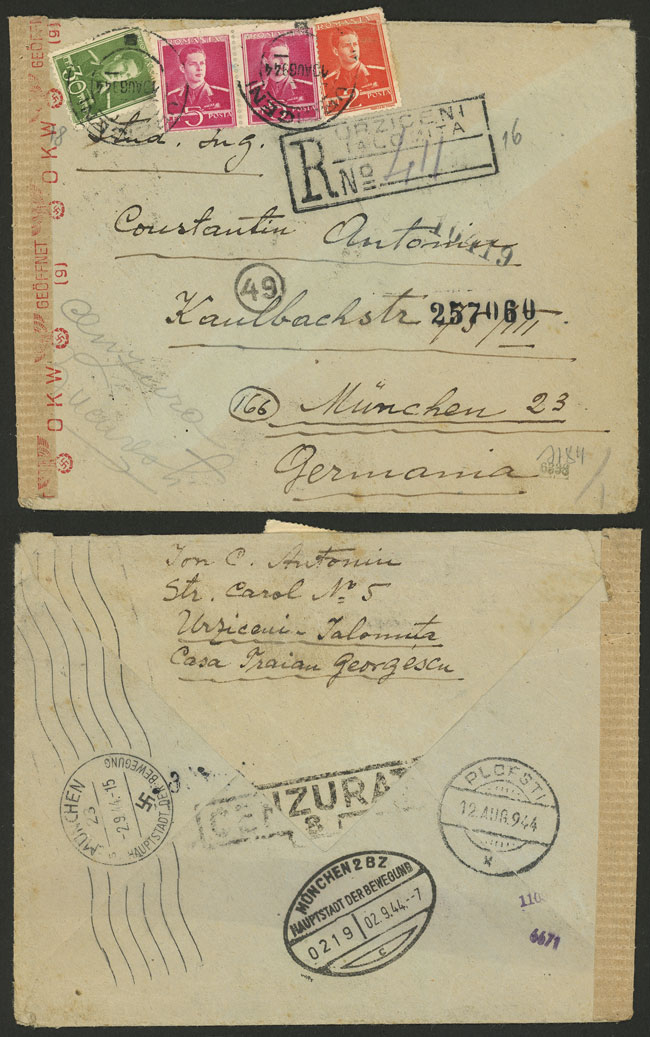 GEÖFFNET (9)
OKW
GEÖFFNET (9)
OKW
30
ROMANIA
5
POSTA
ROMANIA
POSTA
ROMANIA
POSTA
AUG 944
AUG 944
URZICENI
IALOMITA
R No 411
18
16
Stud. Ing.
Constantin Antoniu
10419
49
Kaulbachstr
257060
III
cenzura
166
München 23
Germania
Ion C. Antoniu
Str. Carol No 5
Urziceni - Ialomiţa
Casa Traian Georgescu
MÜNCHEN
23
2.9.44.-15
HAUPTSTADT DER BEWEGUNG
CENZURAT
PLOESTI
12 AUG. 944
MÜNCHEN 2 BZ
HAUPTSTADT DER BEWEGUNG
0219 02.9.44.-7
c
110
6671